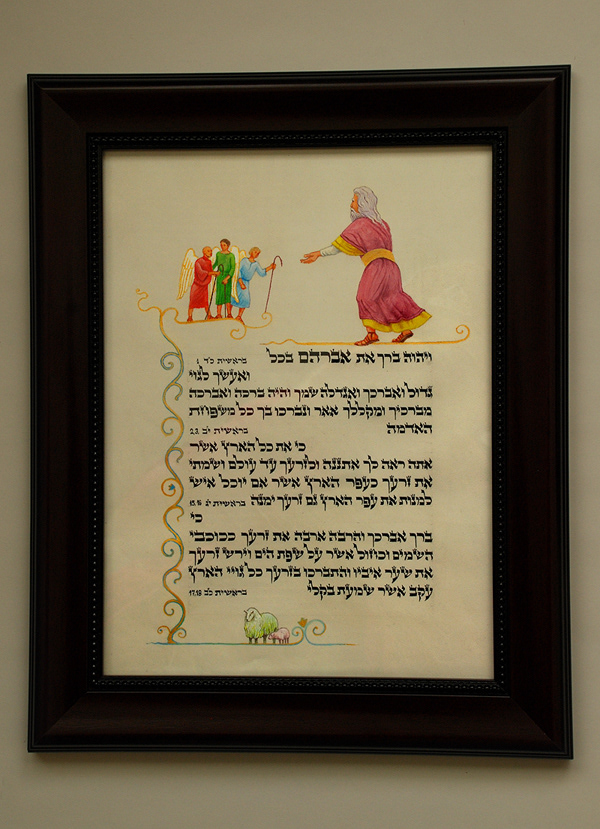 ויהוה ברך את אברהם בכל בראשית כ״ד 1
ואעשך לגוי
גדול ואברכך ואגדלה שמך והיה ברכה ואברכה
מברכיך ומקללך אאר ונברכו בך כל משפחת
האדמה בראשית יב 2,3
כי את כל הארץ אשר
אתה ראה לך אתננה ולזרעך עד עולם ושמתי
את זרעך כעפר הארץ אשר אם יוכל איש
למנות את עפר הארץ גם זרעך ימנה בראשית יג 15,16
כי
ברך אברכך והרבה ארבה את זרעך ככוכבי
השמים וכחול אשר על שפת הים וירש זרעך
את שער איביו והתברכו בזרעך כל גויי הארץ
עקב אשר שמעת בקלי בראשית כב 17,18